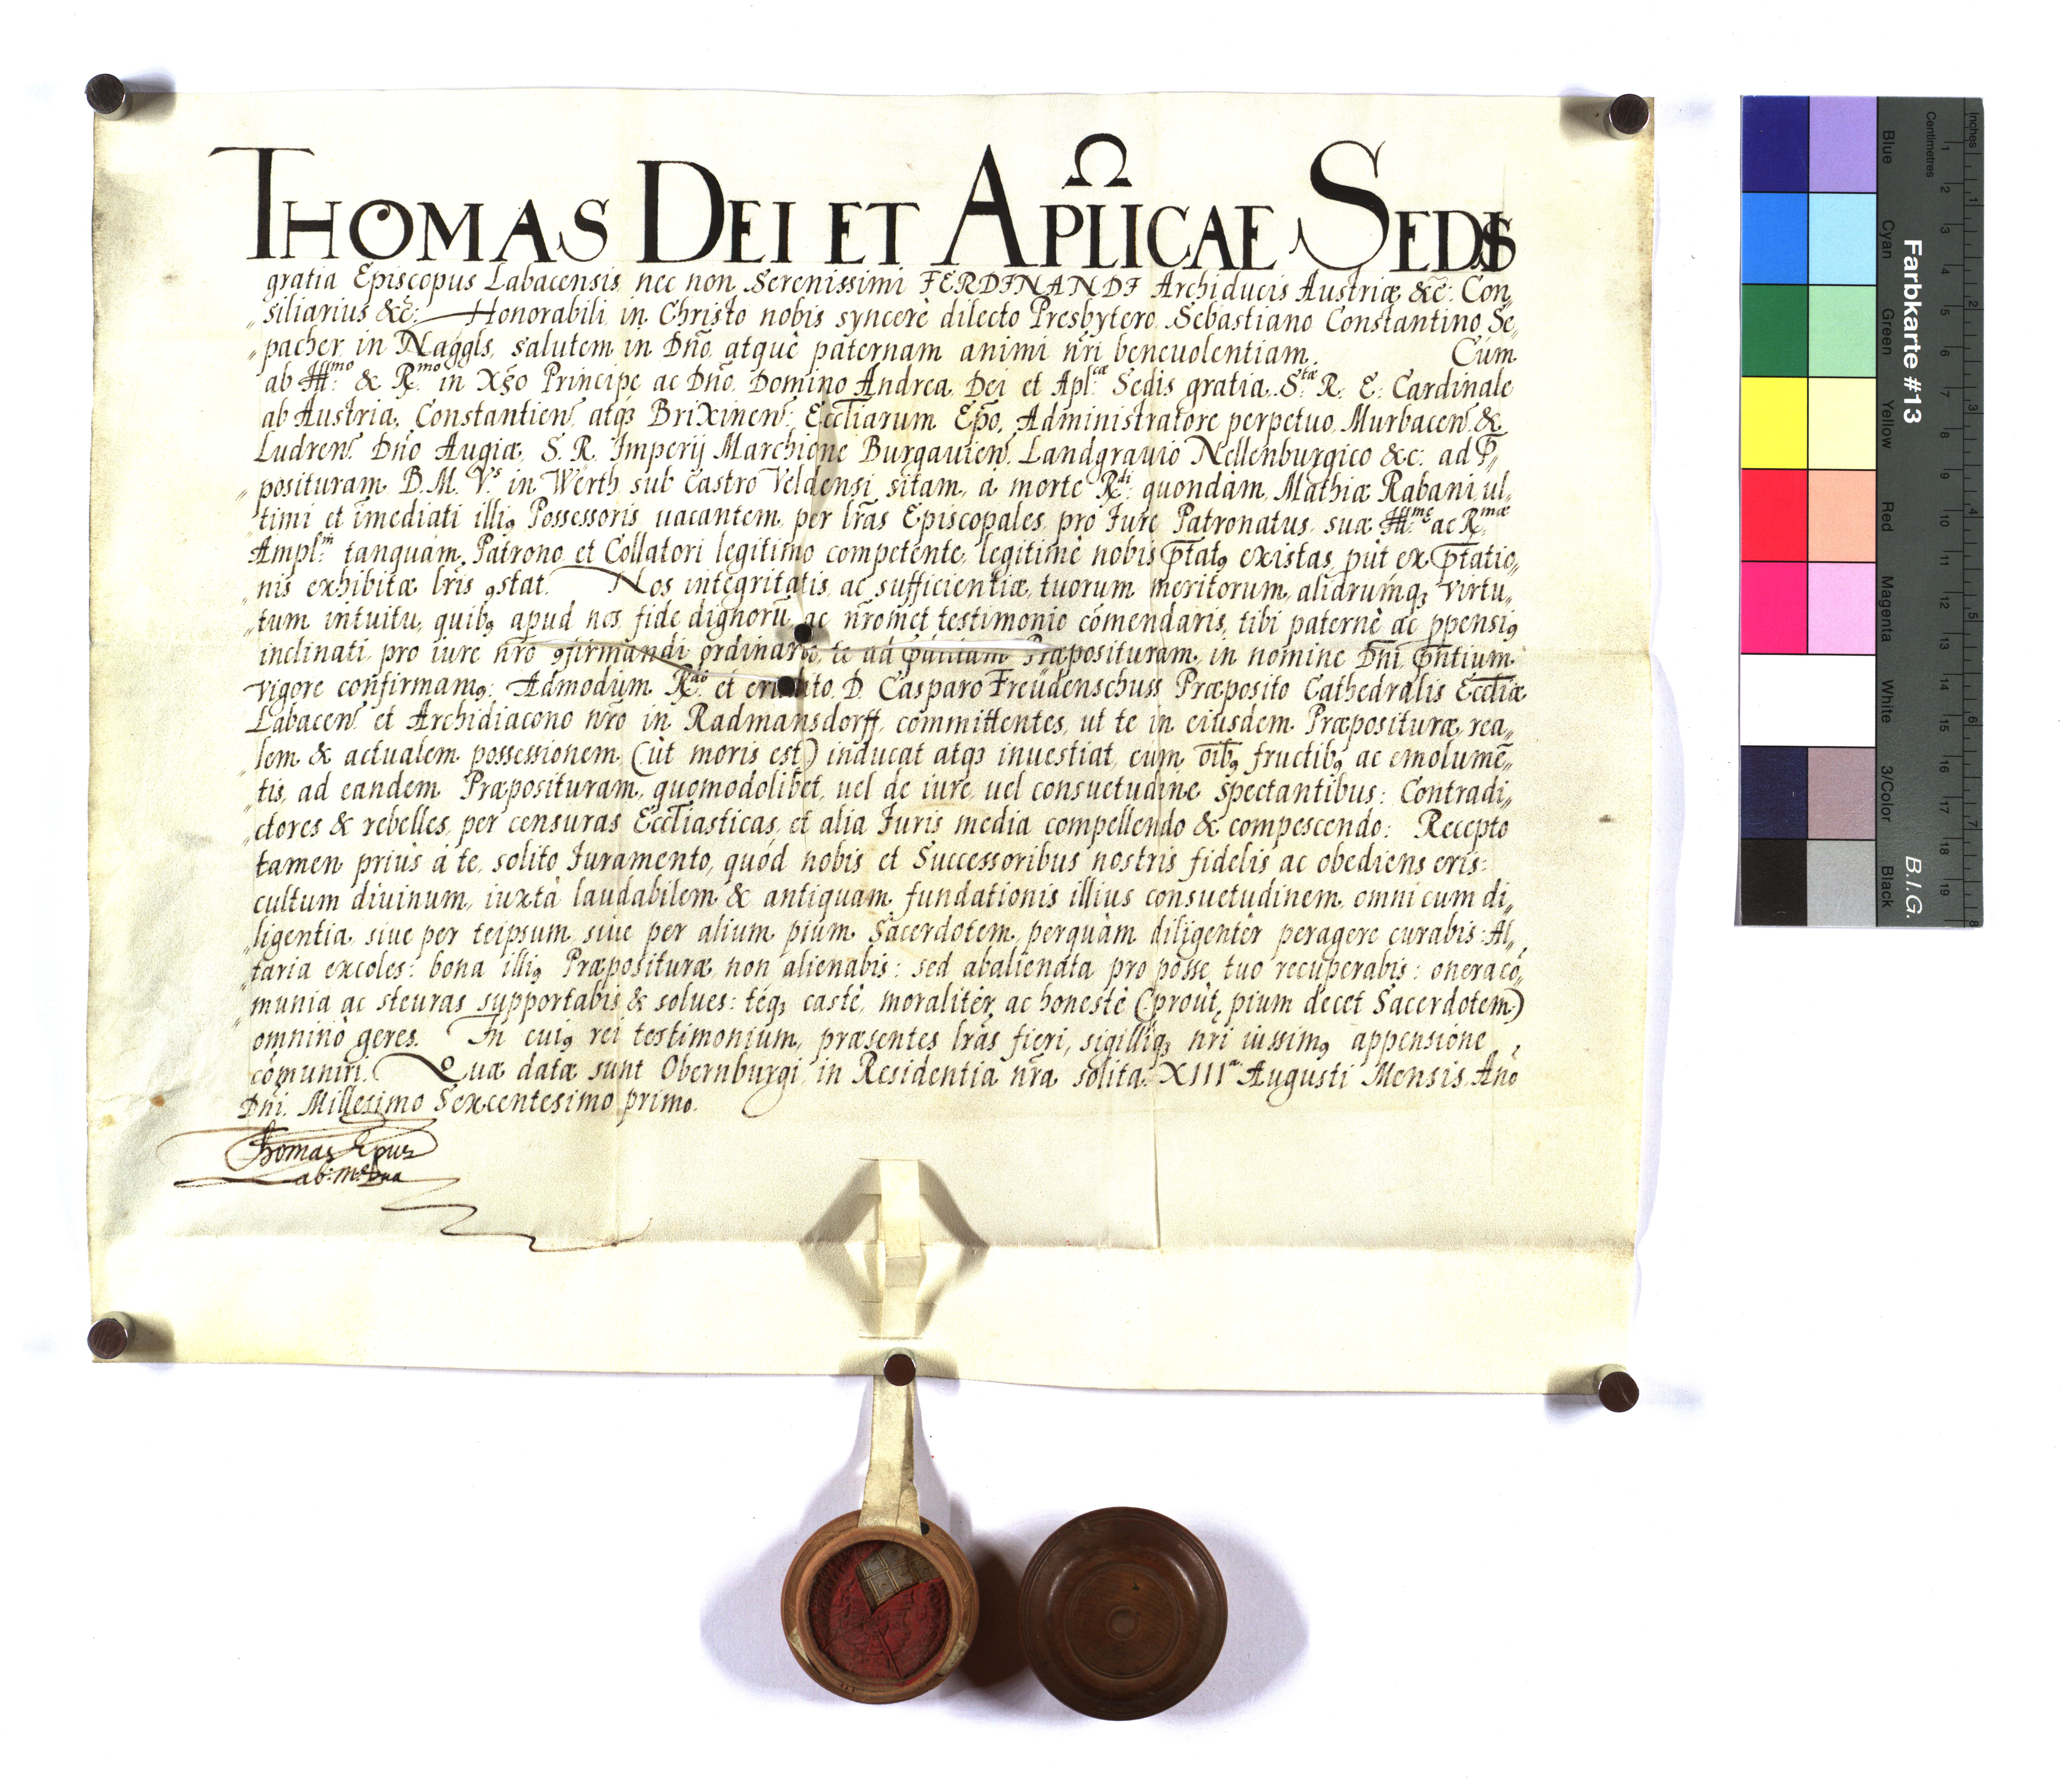 THOMAS DEI ET APLICAE SEDIS
gratia Episcopus Labacensis, nec non Serenissimi FERDINANDI Archiducis Austriæ &c̃: Con„
„siliarius &c̃: Honorabili in Christo nobis syncerè dilecto Presbytero Sebastiano Constantino Se„
„pacher in Naggls, salutem in Dño atque paternam animi nr̃i beneuolentiam. Cùm
ab Ill:mo & R:mo in Xp̃o Principe ac Dño, Domino Andrea Dei et Apl:cæ Sedis gratia S:tæ R. E. Cardinale
ab Austria, Constantien̄ atqꝫ Brixinen̄: Ecc̃liarum Ep̃o, Administratore perpetuo Murbacen̄ &
Ludren̄. Dño Augiæ, S. R. Imperij Marchione Burgauien̄. Landgrauio Nellenburgico &c: ad P̃„
„posituram B. M. V:s in Werth sub Castro Veldensi sitam, à morte R:di quondàm Mathiæ Rabani ul„
„timi et im̃ediati illiꝰ Possessoris uacantem, per lr̃as Episcopales, pro Iure Patronatus suæ Ill:mæ ac R:mæ
Ampl:m tanquàm Patrono et Collatori legitimo competente, legitimè nobis p̃ntatꝰ existas, put ex p̃ntatio„
„nis exhibitæ lr̃is ꝯstat. Nos integritatis ac sufficientiæ, tuorum meritorum, aliarumqꝫ virtu„
„tum intuitu, quibꝰ apud nos fide dignorũ ac nr̃omet testimonio com̃endaris, tibi paternè ac ꝓpensiꝰ
inclinati, pro iure nr̃o ꝯfirmandi ordinario, te ad Præposituram in nomine Dñi p̃ntium
vigore confirmamꝰ: Admodùm R:do et erudito D. Casparo Freüdenschuss Præposito Cathedralis Ecc̃liæ
Labacen̄ et Archidiacono nr̃o in Radmansdorff, committentes, ut te in eiusdem Præposituræ rea„
„lem & actualem possessionem (ùt moris est) inducat atqꝫ inuestiat, cum o͠ibꝰ fructibꝰ ac emolumẽ„
„tis, ad eandem Præposituram quomodolibet, uel de iure uel consuetudine spectantibus: Contradi„
„ctores & rebelles, per censuras Ecc̃liasticas, et alia Iuris media compellendo & compescendo: Recepto
tamen priùs à te, solito Iuramento, quòd nobis et Successoribus nostris fidelis ac obediens eris:
cultum diuinum, iuxtà laudabilem & antiquam fundationis illius consuetudinem omni cum di„
„ligentia, siue per teipsum, siue per alium pium Sacerdotem, perquàm diligentèr peragere curabis: Al„
„taria excoles: bona illiꝰ Præposituræ non alienabis: sed abalienata pro posse tuo recuperabis: onera cõ„
„munia ac steuras supportabis & solues: téqꝫ castè, moralitèr, ac honestè (proùt pium decet Sacerdotem)
omninò geres. In cuiꝰ rei testimonium, præsentes lr̃as fieri, sigilliqꝫ nr̃i iussimꝰ appensione
com̃uniri. Quæ datæ sunt Obernburgi in Residentia nr̃a solita, XIIIa Augusti Mensis, Año
Dñi. Millesimo Sexcentesimo primo.
Thomas Epus
ab: mp̃ Dna
Farbkarte #13
B.I.G.
Inches
Centimetres
Blue
Cyan
Green
Yellow
Red
Magenta
White
3/Color
Black
1 2 3 4 5 6 7 8 9 10 11 12 13 14 15 16 17 18 19
1 2 3 4 5 6 7 8